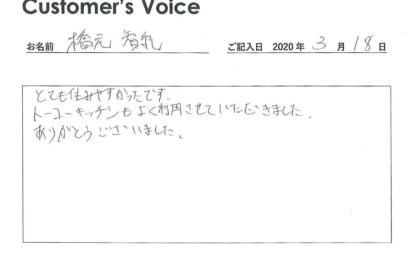 Customer's Voice
お名前 橋元 ご記入日 2020年 3月 18日
とても住みやすかったです。
トーコーキッチンもよく利用させていただきました。
ありがとうございました。